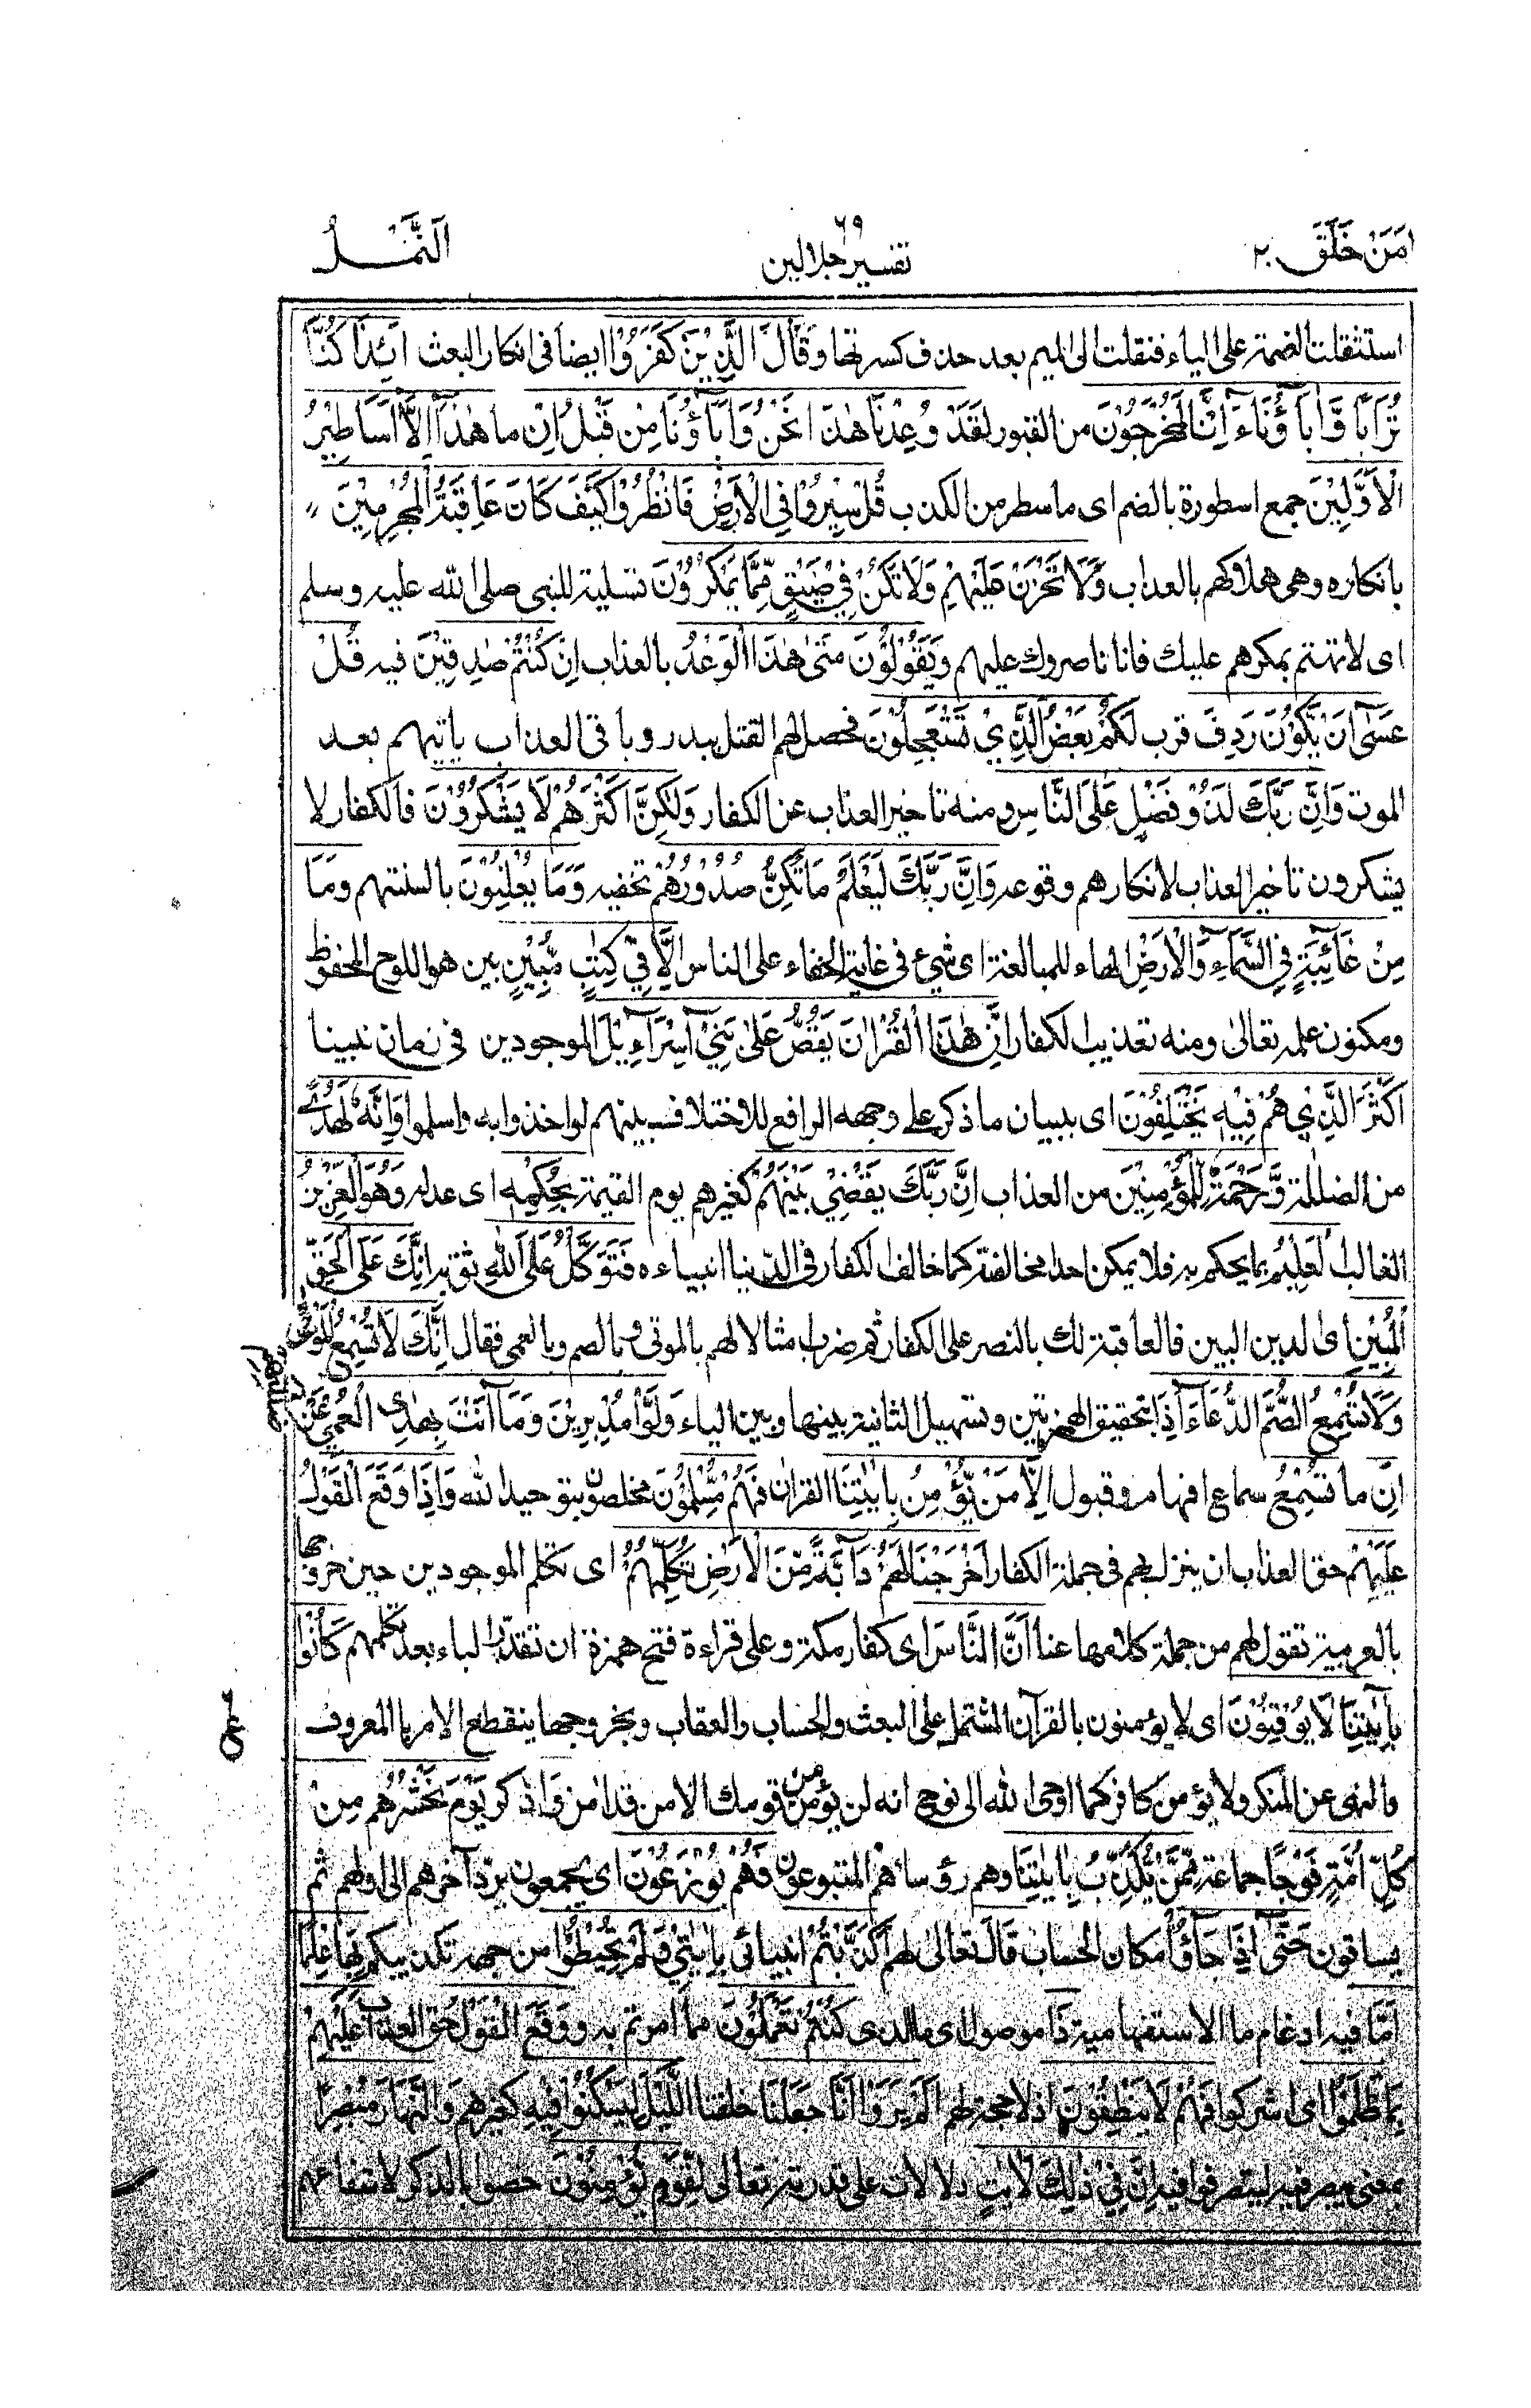 امن خلق ٢٠
٦٩
تفسير جلالين
النمل
استثقلت الضمة على الياء فنقلت الى الميم بعد حذف كسرتها وَقَالَ الَّذِيْنَ كَفَرُوْا ايضا فى انكار البعث ائِذَا كُنَّا
تُرَابًا وَّاٰبَآؤُنَآ ءَاِنَّا لَمُخْرَجُوْنَ من القبور لَقَدْ وُعِدْنَا هٰذَا نَحْنُ وَاٰبَآؤُنَا مِنْ قَبْلُ اِنْ ما هٰذَآ اِلَّآ اَسَاطِيْرُ
الْاَوَّلِيْنَ جمع اسطورة بالضم اى ما سطر من الكذب قُلْ سِيْرُوْا فِي الْاَرْضِ فَانْظُرُوْا كَيْفَ كَانَ عَاقِبَةُ الْمُجْرِمِيْنَ
بانكاره وهى هلاكهم بالعذاب وَلَا تَحْزَنْ عَلَيْهِمْ وَلَا تَكُنْ فِيْ ضَيْقٍ مِّمَّا يَمْكُرُوْنَ تسلية للنبى صلى الله عليه وسلم
اى لا تهتم بمكرهم عليك فانا ناصروك عليهم وَيَقُوْلُوْنَ مَتٰى هٰذَا الْوَعْدُ بالعذاب اِنْ كُنْتُمْ صٰدِقِيْنَ فيه قُلْ
عَسٰٓى اَنْ يَّكُوْنَ رَدِفَ قرب لَكُمْ بَعْضُ الَّذِيْ تَسْتَعْجِلُوْنَ فحصل لهم القتل ببدر وباقى العذاب ياتيهم بعد
الموت وَاِنَّ رَبَّكَ لَذُوْ فَضْلٍ عَلَى النَّاسِ ومنه تاخير العذاب عن الكفار وَلٰكِنَّ اَكْثَرَهُمْ لَا يَشْكُرُوْنَ فالكفار لا
يشكرون تاخير العذاب لانكارهم وقوعه وَاِنَّ رَبَّكَ لَيَعْلَمُ مَا تُكِنُّ صُدُوْرُهُمْ تخفيه وَمَا يُعْلِنُوْنَ بالسنتهم وَمَا
مِنْ غَآئِبَةٍ فِي السَّمَآءِ وَالْاَرْضِ الهاء للمبالغة اى شىء فى غاية الخفاء على الناس اِلَّا فِيْ كِتٰبٍ مُّبِيْنٍ بين هو اللوح المحفوظ
ومكنون علمه تعالى ومنه تعذيب الكفار اِنَّ هٰذَا الْقُرْاٰنَ يَقُصُّ عَلٰى بَنِيْٓ اِسْرَآءِيْلَ الموجودين فى زمان نبينا
اَكْثَرَ الَّذِيْ هُمْ فِيْهِ يَخْتَلِفُوْنَ اى ببيان ما ذكر على وجهه الرافع للاختلاف بينهم لو اخذوا به واسلموا وَاِنَّهٗ لَهُدًى
من الضلالة وَّرَحْمَةٌ لِّلْمُؤْمِنِيْنَ من العذاب اِنَّ رَبَّكَ يَقْضِيْ بَيْنَهُمْ كغيرهم يوم القيمة بِحُكْمِهٖ اى عدله وَهُوَ الْعَزِيْزُ
الغالب الْعَلِيْمُ بما يحكم به فلا يمكن احدا مخالفته كما خالف الكفار فى الدنيا انبياءه فَتَوَكَّلْ عَلَى اللهِ ثق به اِنَّكَ عَلَى الْحَقِّ
الْمُبِيْنِ اى الدين البين فالعاقبة لك بالنصر على الكفار ثم ضرب مثالا لهم بالموتى وبالصم وبالعمى فقال اِنَّكَ لَا تُسْمِعُ الْمَوْتٰى
وَلَا تُسْمِعُ الصُّمَّ الدُّعَآءَ اِذَا بتحقيق الهمزتين وتسهيل الثانية بينها وبين الياء وَلَّوْا مُدْبِرِيْنَ وَمَآ اَنْتَ بِهٰدِى الْعُمْيِ عَنْ
ضلالتهم
اِنْ ما تُسْمِعُ سماع افهام وقبول اِلَّا مَنْ يُّؤْمِنُ بِاٰيٰتِنَا القران فَهُمْ مُّسْلِمُوْنَ مخلصون بتوحيد الله وَاِذَا وَقَعَ الْقَوْلُ
عَلَيْهِمْ حق العذاب ان ينزل بهم فى جملة الكفار اَخْرَجْنَا لَهُمْ دَآبَّةً مِّنَ الْاَرْضِ تُكَلِّمُهُمْ اى تكلم الموجودين حين خروجها
بالعربية تقول لهم من جملة كلامها عنا اَنَّ النَّاسَ اى كفار مكة وعلى قراءة فتح همزة ان تقدر الباء بعد تكلمهم كَانُوْا
بِاٰيٰتِنَا لَا يُوْقِنُوْنَ اى لا يؤمنون بالقرآن المشتمل على البعث والحساب والعقاب وبخروجها ينقطع الامر بالمعروف
والنهى عن المنكر ولا يؤمن كافر كما اوحى الله الى نوح انه لن يؤمن من قومك الا من قد امن وَ اذكر يَوْمَ نَحْشُرُهُمْ مِنْ
كُلِّ اُمَّةٍ فَوْجًا جماعة مِّمَّنْ يُّكَذِّبُ بِاٰيٰتِنَا وهم رؤساؤهم المتبوعون فَهُمْ يُوْزَعُوْنَ اى يجمعون برد آخرهم الى اولهم ثم
يساقون حَتّٰىٓ اِذَا جَآؤُ مكان الحساب قَالَ تعالى لهم اَكَذَّبْتُمْ انبيائى بِاٰيٰتِيْ وَلَمْ تُحِيْطُوْا من جهة تكذيبكم بِهَا عِلْمًا
اَمَّا فيه ادغام ما الاستفهامية ذَا موصول اى ما الذى كُنْتُمْ تَعْمَلُوْنَ مما امرتم به وَوَقَعَ الْقَوْلُ حق العذاب عَلَيْهِمْ
بِمَا ظَلَمُوْا اى اشركوا فَهُمْ لَا يَنْطِقُوْنَ اذ لا حجة لهم اَلَمْ يَرَوْا اَنَّا جَعَلْنَا خلقنا الَّيْلَ لِيَسْكُنُوْا فِيْهِ كغيرهم وَالنَّهَارَ مُبْصِرًا
بمعنى يبصر فيه ليتصرفوا فيه اِنَّ فِيْ ذٰلِكَ لَاٰيٰتٍ دلالات على قدرته تعالى لِّقَوْمٍ يُّؤْمِنُوْنَ خصوا بالذكر لانتفاعهم